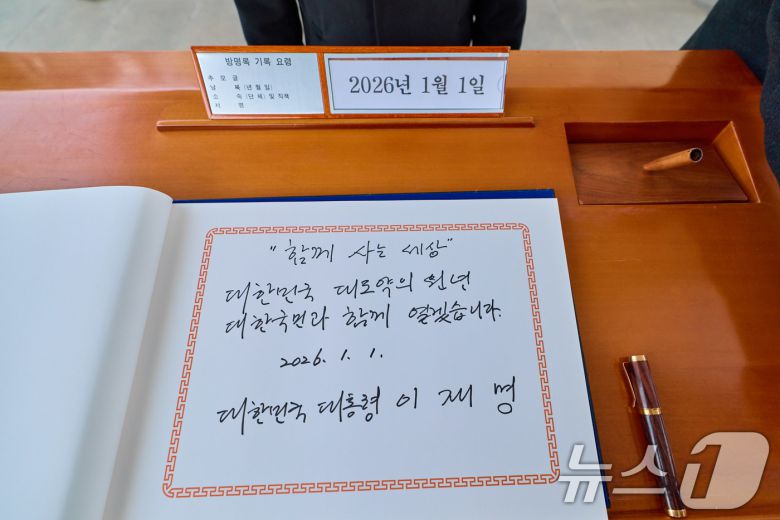 방명록 기록 요령
추 모 글
날 복 (년 월 일)
소 속 (단 체) 및 직책
서 명
2026년 1월 1일
"함께 사는 세상"
대한민국 대도약의 원년
대한국민과 함께 열겠습니다.
2026. 1. 1.
대한민국 대통령 이 재 명
뉴스1